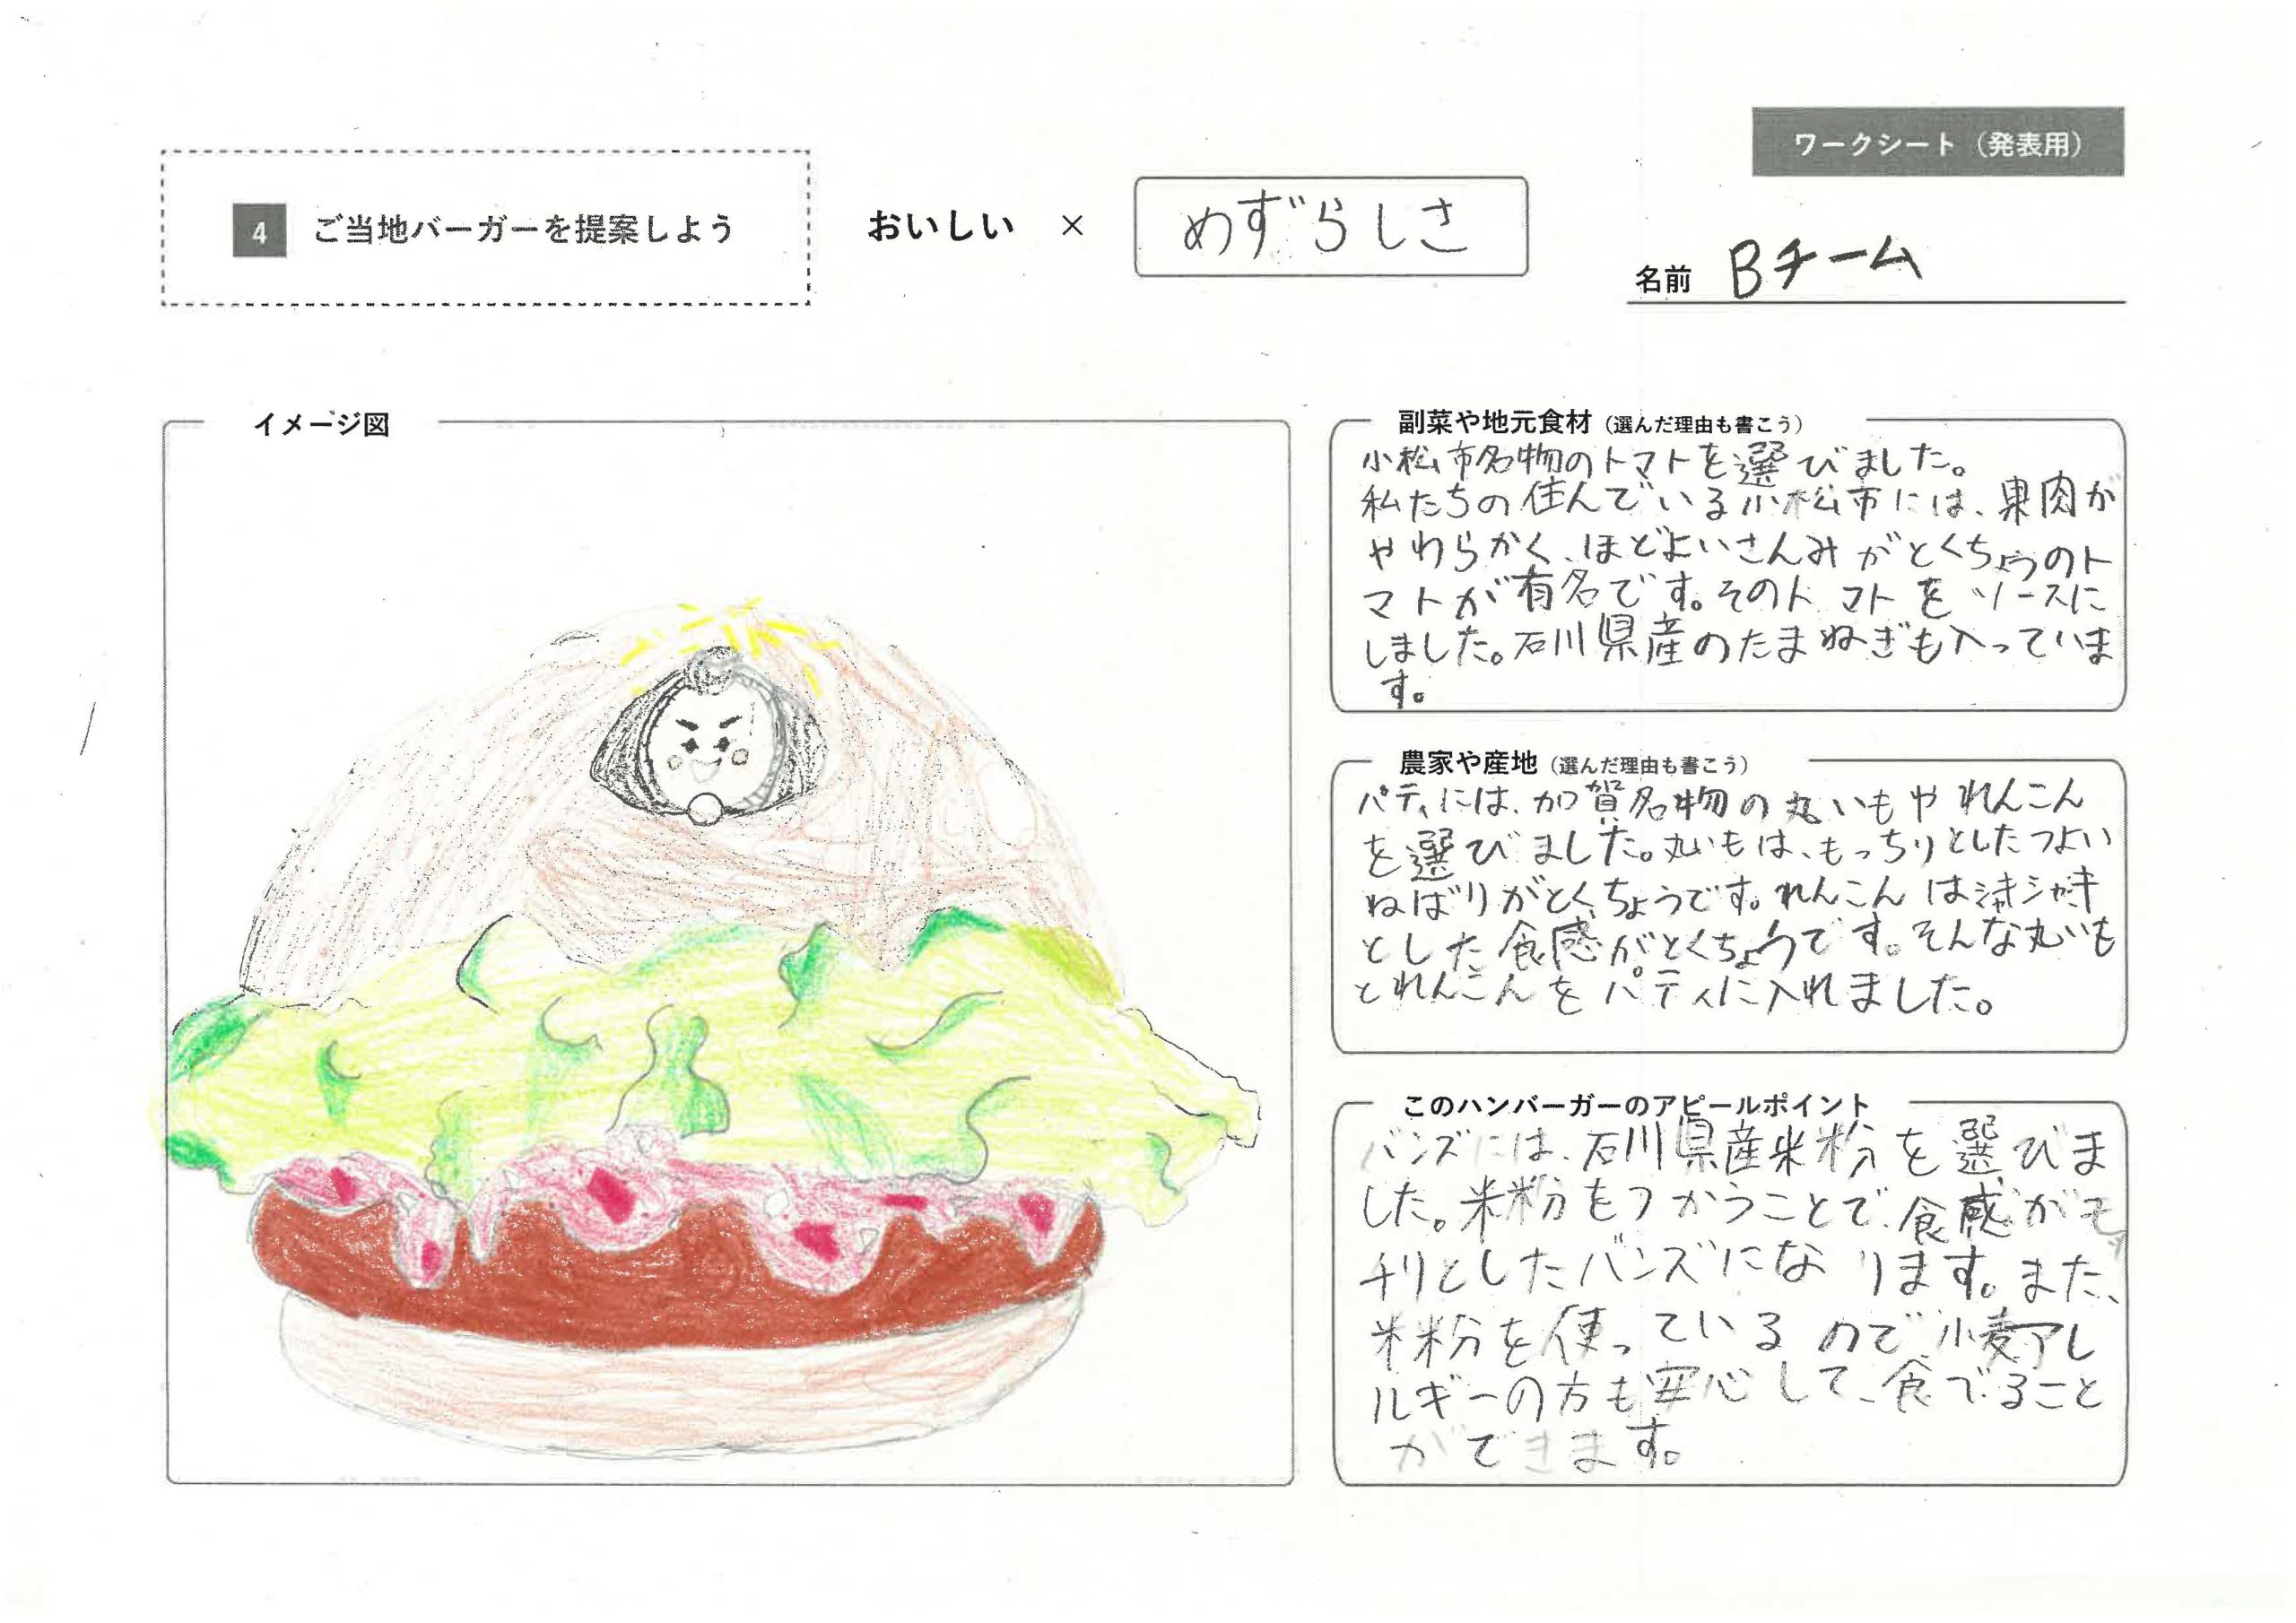 ワークシート（発表用）
4 ご当地バーガーを提案しよう
おいしい × めずらしさ
名前 Bチーム
イメージ図
副菜や地元食材（選んだ理由も書こう）
小松市名物のトマトを選びました。
私たちの住んでいる小松市には、果肉が
やわらかく、ほどよいさんみがとくちょうのト
マトが有名です。そのトマトをソースに
しました。石川県産のたまねぎも入っていま
す。
農家や産地（選んだ理由も書こう）
パティには、加賀名物の丸いもやれんこん
を選びました。丸いもは、もっちりとしたつよい
ねばりがとくちょうです。れんこんはシャキシャキ
とした食感がとくちょうです。そんな丸いも
とれんこんをパティに入れました。
このハンバーガーのアピールポイント
バンズには、石川県産米粉を選びま
した。米粉をつかうことで、食感がモッ
チリとしたバンズになります。また、
米粉を使っているので小麦アレ
ルギーの方も安心して、食べること
ができます。